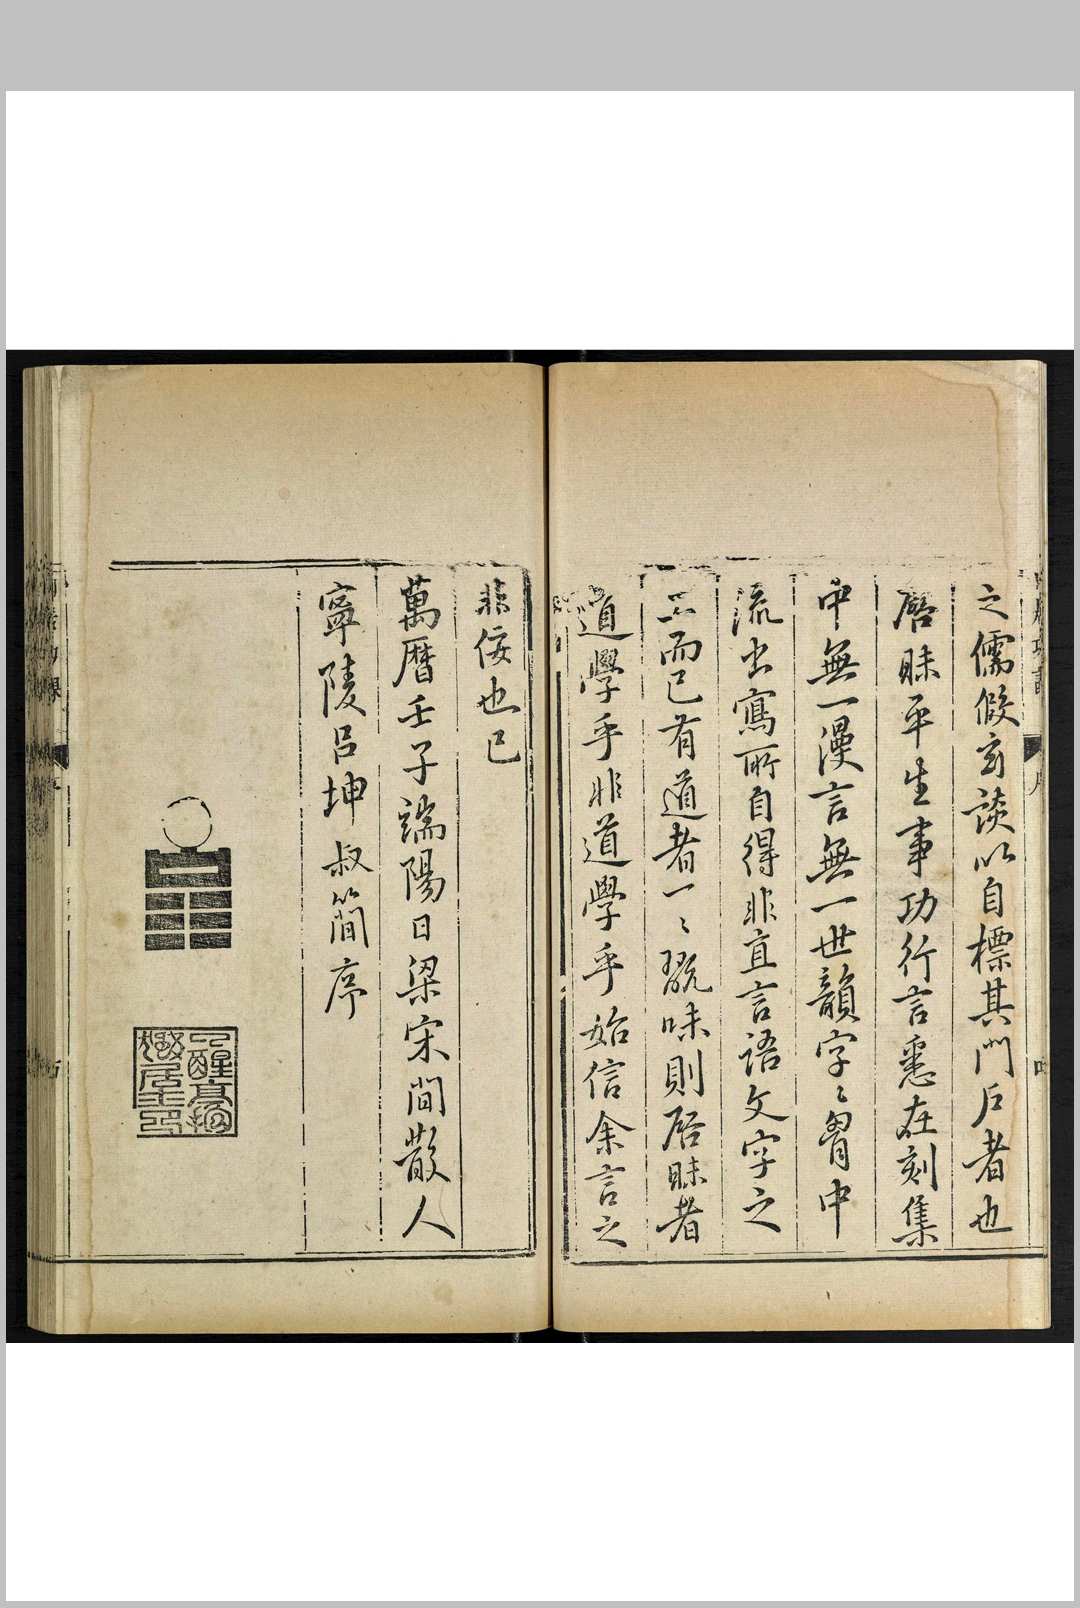 之儒假玄談以自標其門戶者也
启昧平生事功行言悉在刻集
中無一漫言無一世韻字〻胷中
流出寫所自得非直言語文字之
工而已有道者一〻翫味則启昧者
道學乎非道學乎始信余言之
非佞也已
萬曆壬子端陽日梁宋閒散人
寧陵呂坤叔簡序